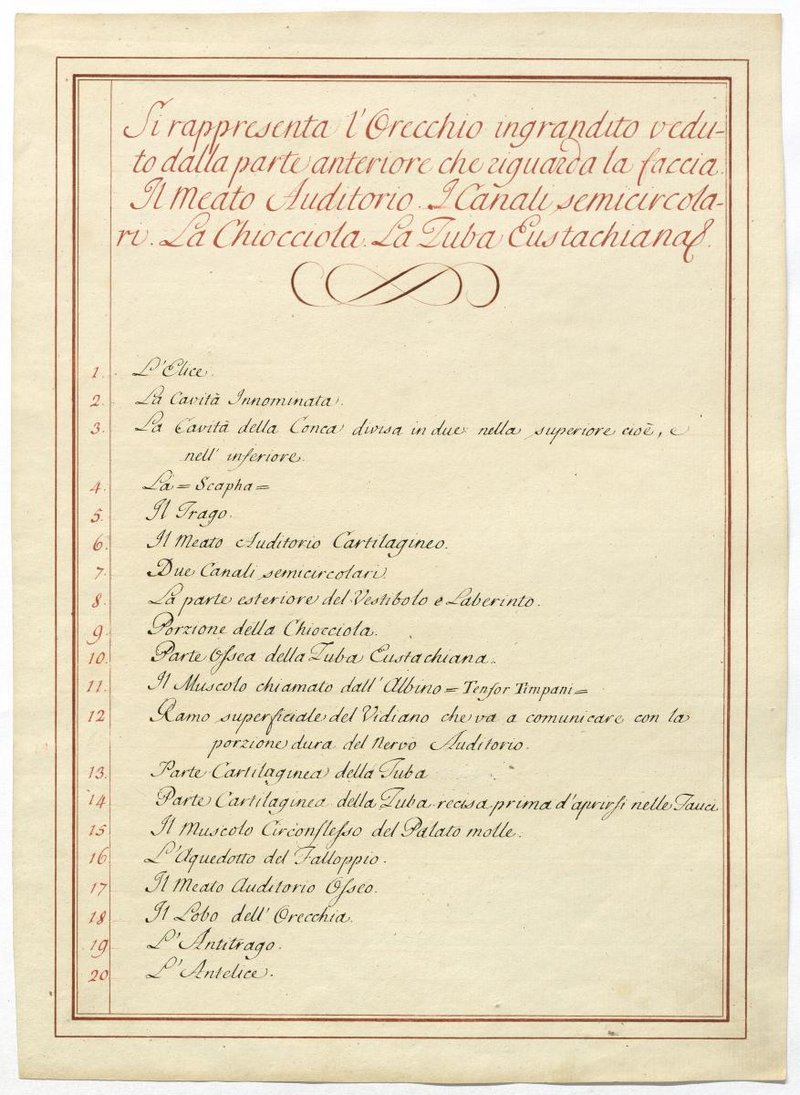 Si rappresenta l'Orecchio ingrandito vedu-
to dalla parte anteriore che riguarda la faccia.
Il Meato Auditorio. I Canali semicircola-
ri. La Chiocciola. La Tuba Eustachiana &.
1. L'Elice.
2. La Cavità Innominata.
3. La Cavità della Conca divisa in due nella superiore cioè, e
nell' inferiore.
4. La = Scapha =
5. Il Trago.
6. Il Meato Auditorio Cartilagineo.
7. Due Canali semicircolari.
8. La parte esteriore del Vestibolo e Laberinto.
9. Porzione della Chiocciola.
10. Parte Ossea della Tuba Eustachiana.
11. Il Muscolo chiamato dall' Albino = Tensor Timpani =
12 Ramo superficiale del Vidiano che va a comunicare con la
porzione dura del Nervo Auditorio.
13. Parte Cartilaginea della Tuba
14 Parte Cartilaginea della Tuba recisa prima d'aprirsi nelle Fauci
15 Il Muscolo Circonflesso del Palato molle.
16 L'Aquedotto del Falloppio.
17 Il Meato Auditorio Osseo.
18 Il Lobo dell' Orecchia.
19 L'Antitrago.
20 L'Antelice.